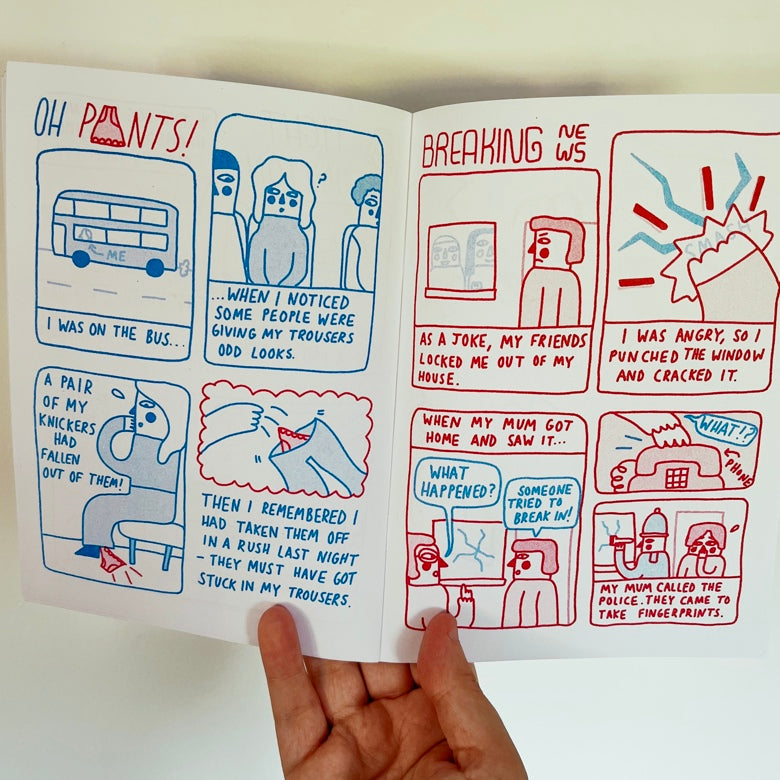 OH PANTS!
← ME
I WAS ON THE BUS...
?
...WHEN I NOTICED
SOME PEOPLE WERE
GIVING MY TROUSERS
ODD LOOKS.
A PAIR
OF MY
KNICKERS
HAD
FALLEN
OUT OF THEM!
THEN I REMEMBERED I
HAD TAKEN THEM OFF
IN A RUSH LAST NIGHT
- THEY MUST HAVE GOT
STUCK IN MY TROUSERS.
BREAKING NE
WS
AS A JOKE, MY FRIENDS
LOCKED ME OUT OF MY
HOUSE.
SMASH
I WAS ANGRY, SO I
PUNCHED THE WINDOW
AND CRACKED IT.
WHEN MY MUM GOT
HOME AND SAW IT...
WHAT
HAPPENED?
SOMEONE
TRIED TO
BREAK IN!
WHAT!?
PHONE
MY MUM CALLED THE
POLICE. THEY CAME TO
TAKE FINGERPRINTS.